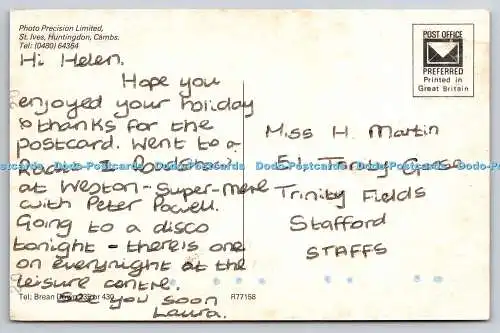 Photo Precision Limited,
St. Ives, Huntingdon, Cambs.
Tel: (0480) 64364
POST OFFICE
PREFERRED
Printed in
Great Britain
Hi Helen,
Hope you
enjoyed your holiday
& thanks for the
postcard. Went to a
Radio 1 Roadshow
at Weston-super-mare
with Peter Powell.
Going to a disco
tonight - there is one
on everynight at the
leisure centre.
See you soon
Laura.
Miss H. Martin
Trinity
Trinity Fields
Stafford
STAFFS
Dodo-Postcards Dodo-Postcards Dodo-Postcards Dodo-Postcards
Tel: Brean Down 235 or 430
R77158